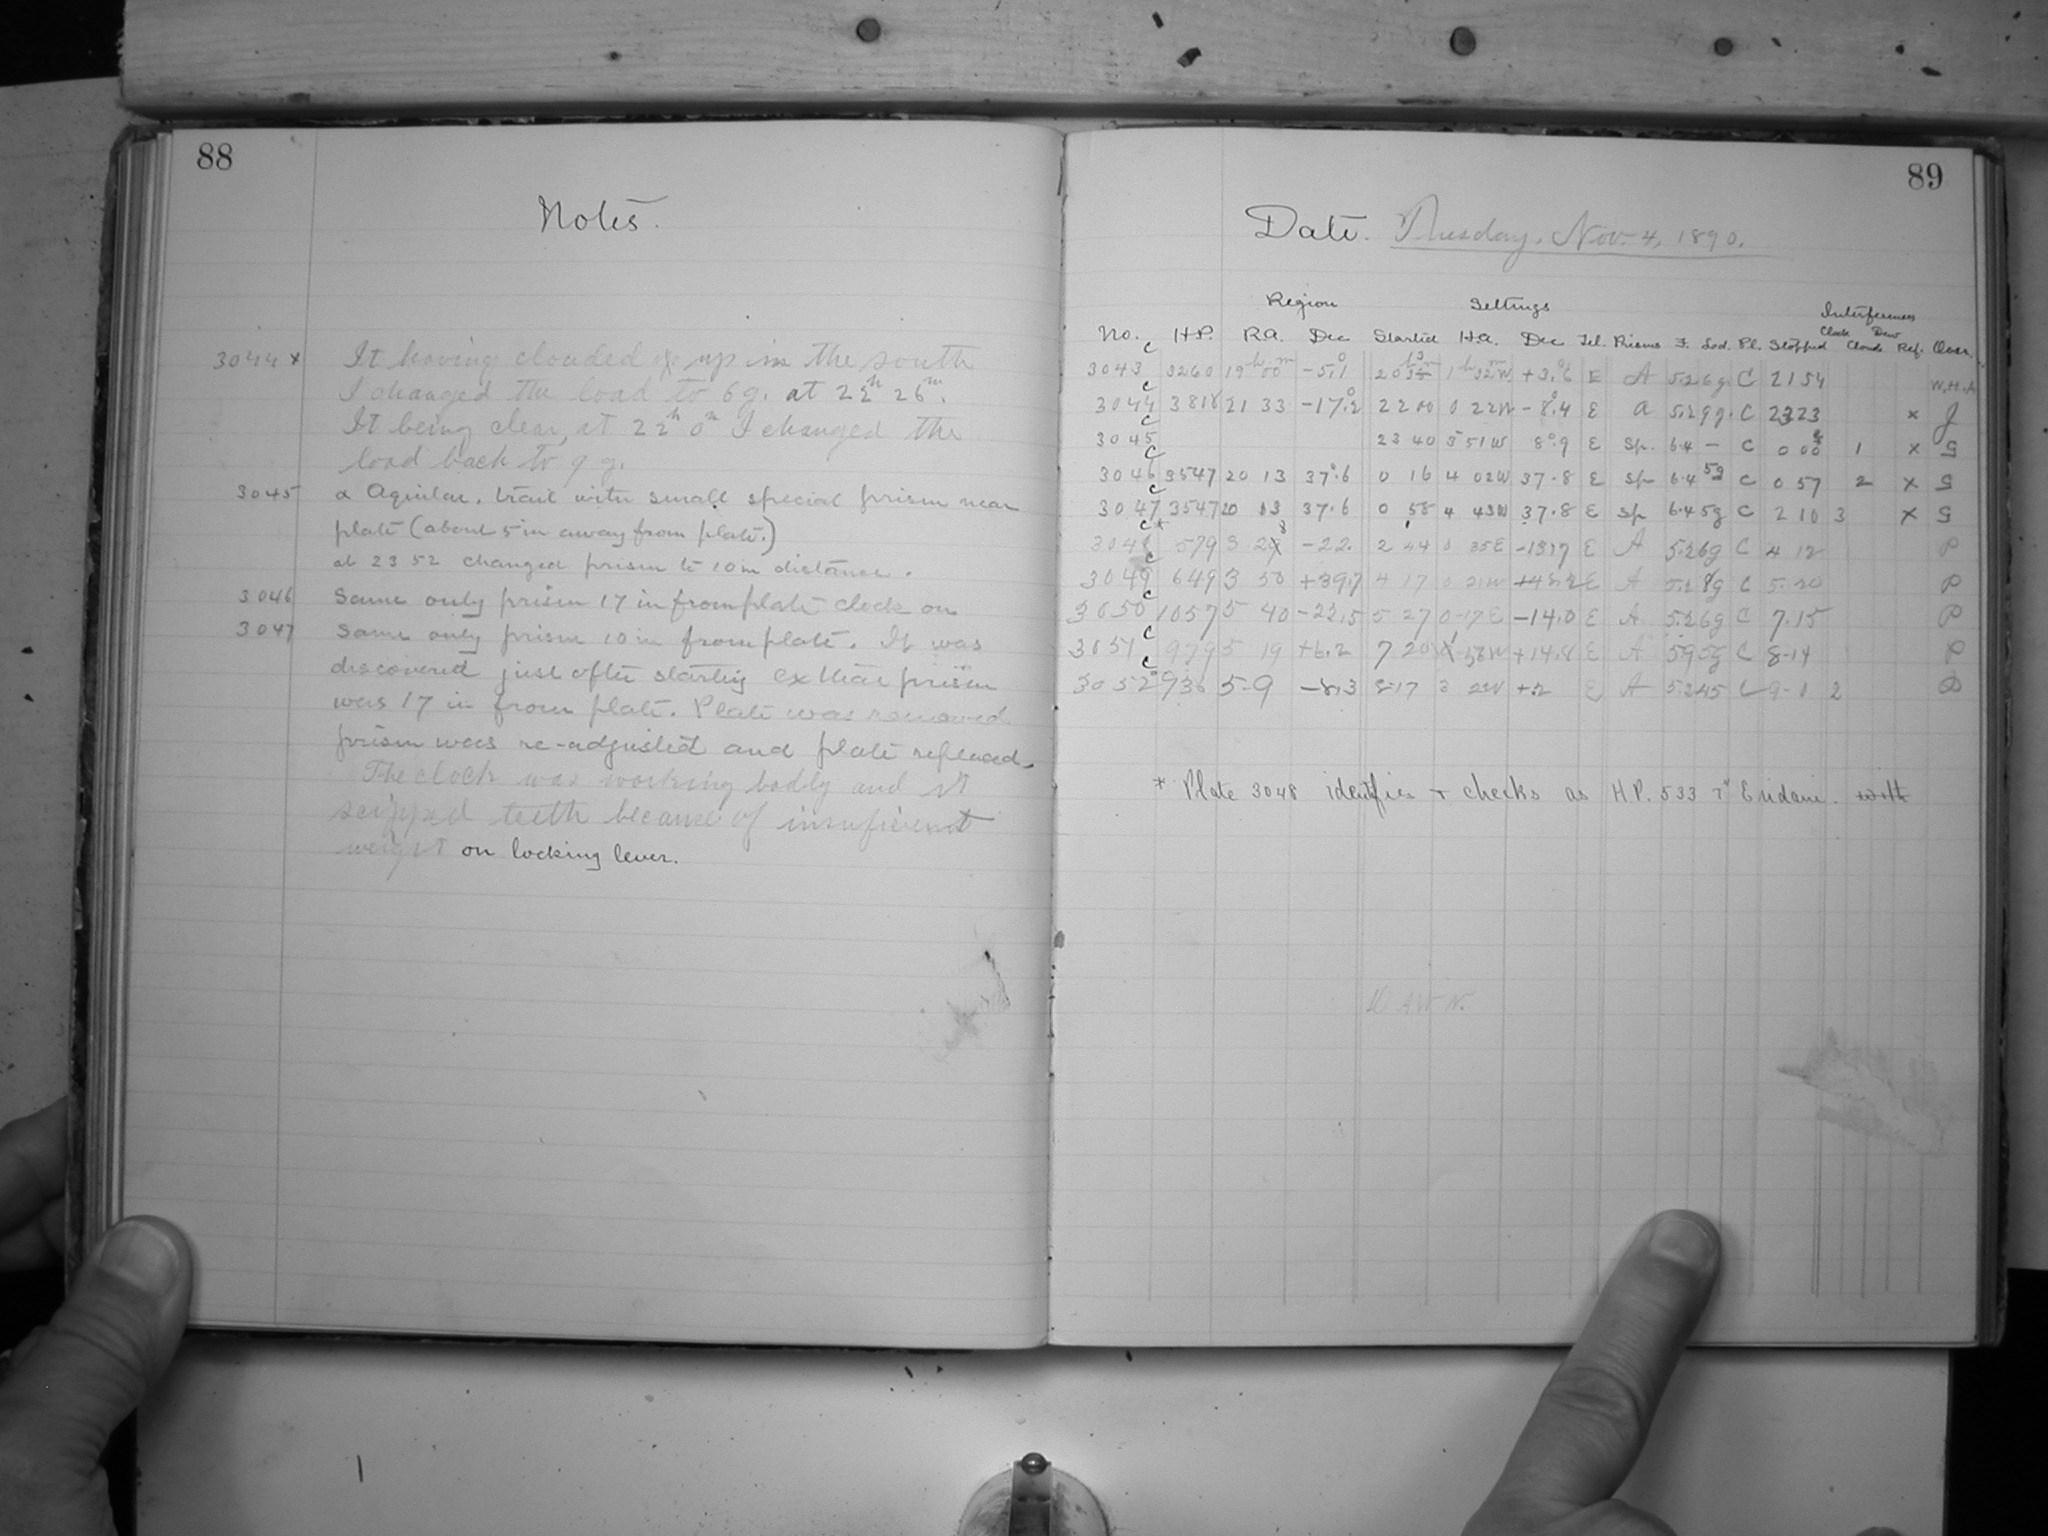 88
Notes.
3044 x It having clouded up in the south
I changed the load to 6g. at 22h 26m.
It being clear, at 22h 0m I changed the
load back to 9 g.
3045 α Aquilae. trail with small special prism near
plate (about 5 in away from plate.)
at 23 52 changed prism to 10 in distance.
3046 Same only prism 17 in from plate clock on
3047 Same only prism 10 in from plate. It was
discovered just after starting ex that prism
was 17 in from plate. Plate was removed
prism was re-adjusted and plate replaced.
The clock was working badly and it
skipped teeth because of insuficient
weight on locking lever.
89
Date. Tuesday, Nov. 4, 1890.
Region Settings Interferences
No. H.P. R.A. Dec Started H.A. Dec Tel. Prisms F. Lod. Pl. Stopped Clock Clouds Dew Ref. Obser.
3043 c 3260 19h 00m -5.1° 1h 32m W +3.6° E A 5.2 6g. C 21 54 W.H.
3044 c 3818 21 33 -17.2° 22 00 0 22W -8.4° E A 5.2 9g. C 23 23 x J
3045 c 23 40 3 51W 8.9° E Sp. 6.4 - C 0 00 1 x S
3046 c 3547 20 13 37.6° 0 16 4 02W 37.8 E Sp 6.4 5g C 0 57 2 x S
3047 c 3547 20 13 37.6 0 58 4 43W 37.8 E Sp 6.4 5g C 2 10 3 x S
3048 c* 579 3 28 -22. 2 44 0 35E -13.7 E A 5.2 6g C 4 12 P
3049 c 649 3 50 +39.7 4 17 0 21W E A 5.2 8g C 5.20 P
3050 c 1057 5 40 -22.5 5 27 0-17E -14.0 E A 5.2 6g C 7.15 P
3051 c 979 5 19 +6.2 7 20 1 58W +14.8 E A 5.9 5g C 8-14 P
3052 c 936 5-9 -8.3 8-17 3 2W +2 E A 5.2 45 C 9-1 2 P
* Plate 3048 identifies + checks as H.P. 533 τ⁴ Eridani. with
DAWN.